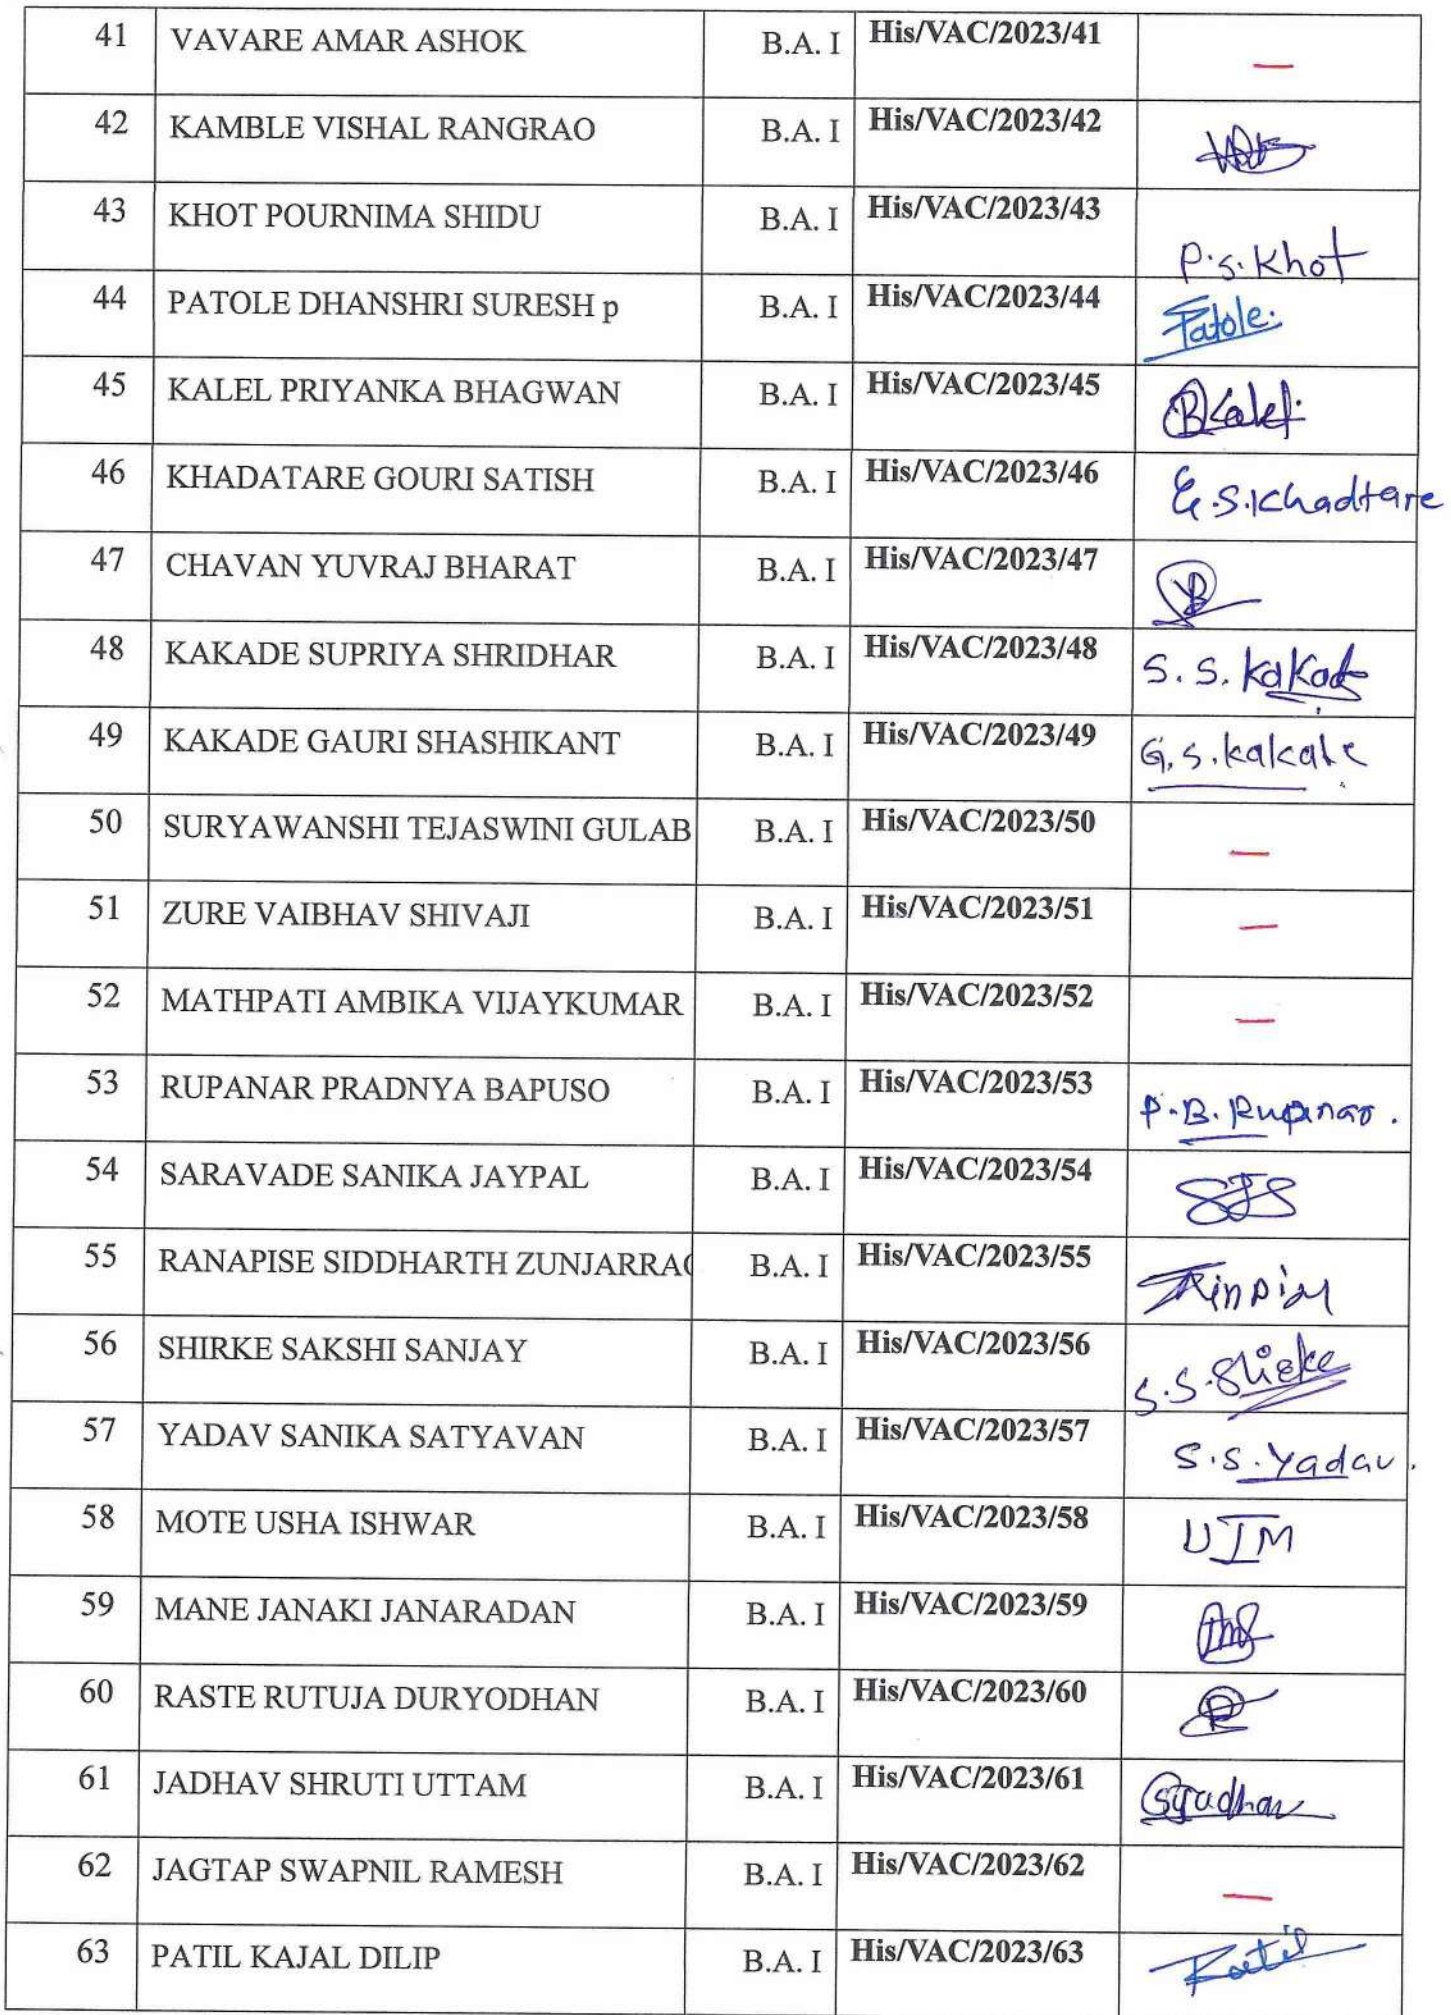 41 VAVARE AMAR ASHOK B.A. I His/VAC/2023/41 —
42 KAMBLE VISHAL RANGRAO B.A. I His/VAC/2023/42
43 KHOT POURNIMA SHIDU B.A. I His/VAC/2023/43 P.S. Khot
44 PATOLE DHANSHRI SURESH p B.A. I His/VAC/2023/44 Patole.
45 KALEL PRIYANKA BHAGWAN B.A. I His/VAC/2023/45 PBKalel.
46 KHADATARE GOURI SATISH B.A. I His/VAC/2023/46 G.S.Khadtare
47 CHAVAN YUVRAJ BHARAT B.A. I His/VAC/2023/47
48 KAKADE SUPRIYA SHRIDHAR B.A. I His/VAC/2023/48 S. S. Kakade
49 KAKADE GAURI SHASHIKANT B.A. I His/VAC/2023/49 G.S. kakade
50 SURYAWANSHI TEJASWINI GULAB B.A. I His/VAC/2023/50 —
51 ZURE VAIBHAV SHIVAJI B.A. I His/VAC/2023/51 —
52 MATHPATI AMBIKA VIJAYKUMAR B.A. I His/VAC/2023/52 —
53 RUPANAR PRADNYA BAPUSO B.A. I His/VAC/2023/53 P.B. Rupanar.
54 SARAVADE SANIKA JAYPAL B.A. I His/VAC/2023/54 SJS
55 RANAPISE SIDDHARTH ZUNJARRAO B.A. I His/VAC/2023/55
56 SHIRKE SAKSHI SANJAY B.A. I His/VAC/2023/56 S.S. Shirke
57 YADAV SANIKA SATYAVAN B.A. I His/VAC/2023/57 S.S. Yadav.
58 MOTE USHA ISHWAR B.A. I His/VAC/2023/58 UIM
59 MANE JANAKI JANARADAN B.A. I His/VAC/2023/59
60 RASTE RUTUJA DURYODHAN B.A. I His/VAC/2023/60
61 JADHAV SHRUTI UTTAM B.A. I His/VAC/2023/61 SJadhav
62 JAGTAP SWAPNIL RAMESH B.A. I His/VAC/2023/62 —
63 PATIL KAJAL DILIP B.A. I His/VAC/2023/63 Patil